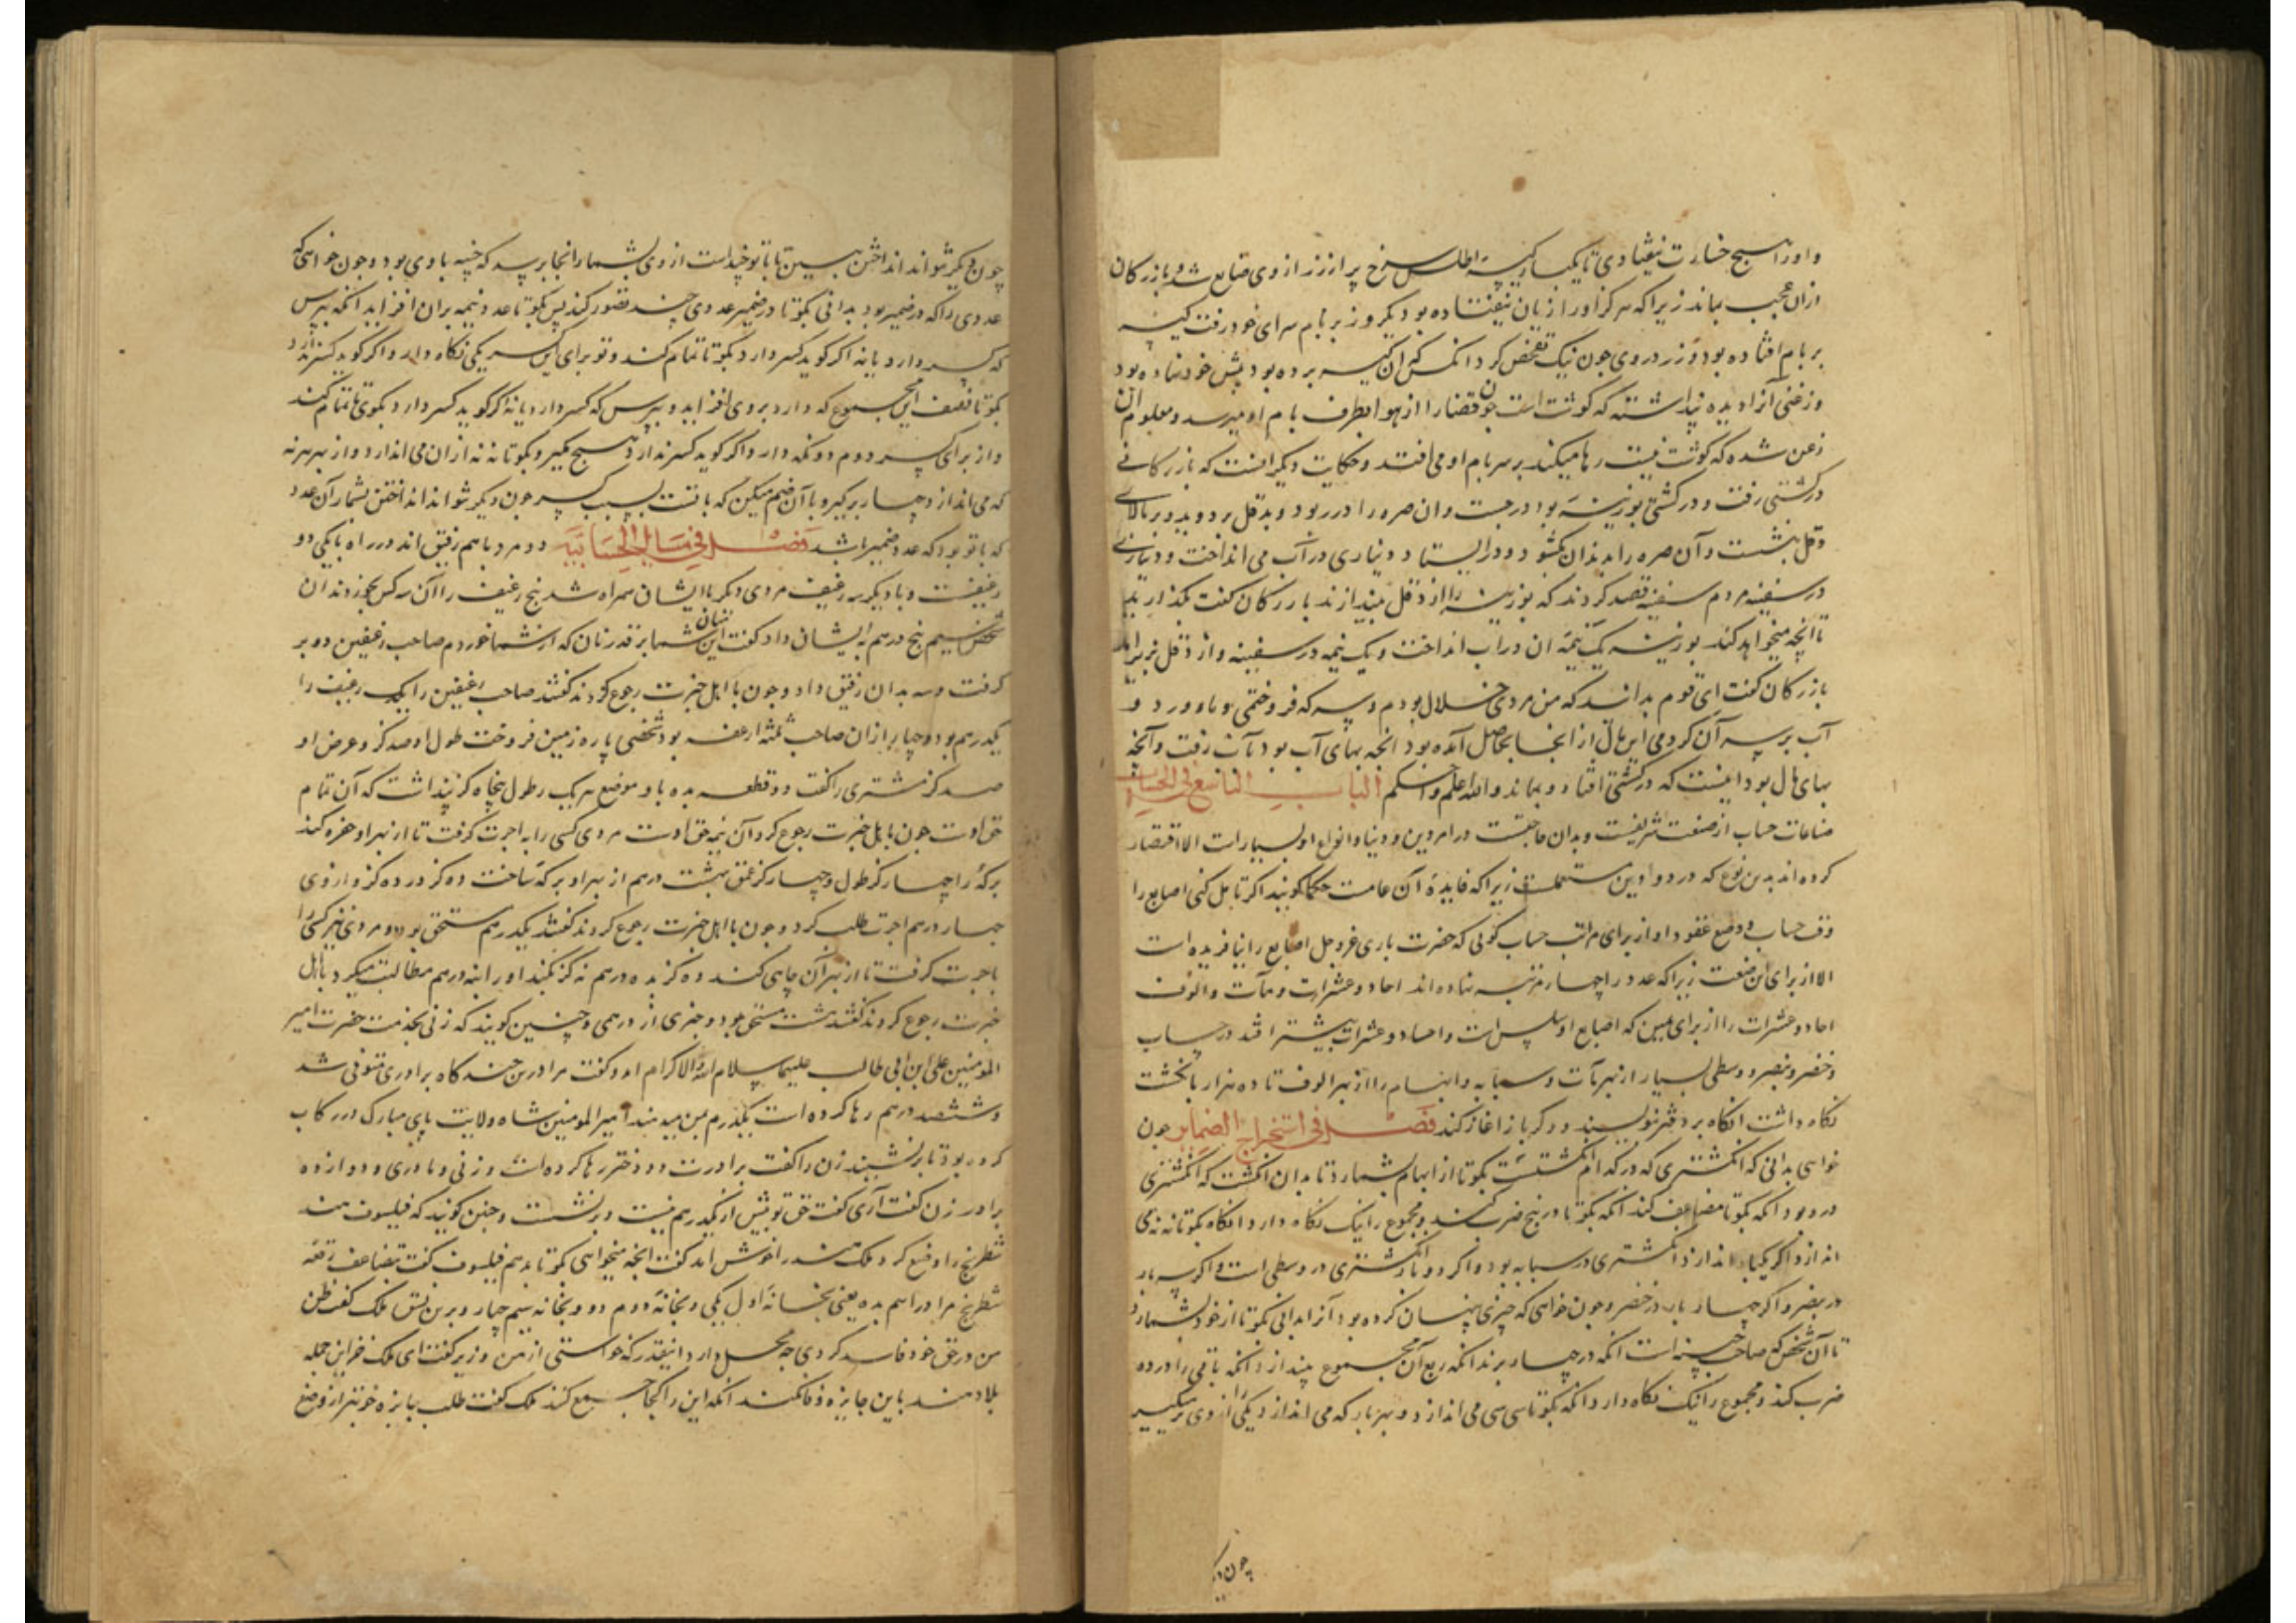 و اورا هیچ خسارت نیفتادی تا یکبار کیسهٔ اطلس سرخ پر از زر از وی ضایع شد و بازرکان
ازان عجب بماند زیرا که هرکز اورا زیان نیفتاده بود دیکر روز بر بام سرای خود رفت کیسه
بر بام افتاده بود و زر در وی چون نیک تفحص کرد انکس که آن کیسه برده بود پیش خود نهاده بود
و زغنی آنرا دیده پنداشته که کوشت است چون قضا را از هوا بطرف بام او میرسد و معلوم آن
زغن شده که کوشت نیست رها میکند بر سر بام او می افتد و حکایت دیکر اینست که بازرکانی
در کشتی رفت و در کشتی بوزینهٔ بود در جست و ان صره را در ربود و بدقل بر دوید و بر بالای
دقل بنشست و آن صره را بدندان بکشود و در ایستاد و دیناری در آب می انداخت و دیناری
در سفینه مردم سفینه قصد کردند که بوزینه را از دقل بیندازند بازرکان کفت بکذارید
تا آنچه میخواهد کند بوزینه یک نیمهٔ ان در اب انداخت و یک نیمه در سفینه و از دقل بزیر آمد
بازرکان کفت ای قوم بدانید که من مردی خلال بودم و سرکه فروختمی و
آب بر سر آن کردمی این مال از انجا بحاصل آمده بود انچه بهای آب بود بآب رفت و آنچه
بهای مال بود اینست که در کشتی افتاد و بماند والله اعلم واحکم الباب التاسع فی الحساب
صناعات حساب از صنعت شریفست و بدان حاجتست در امر دین و دنیا و انواع او بسیارات الا اقتصار
کرده اند بدین نوع که در دواوین مستعملست زیرا که فایدهٔ آن عامست حکما کویند اکر تامل کنی اصابع را
وفت حساب و وضع عقود او از برای مراتب حساب کویی که حضرت باری عز و جل اصابع را نیافریده است
الا از برای این صنعت زیرا که عدد را چهار مرتبه نهاده اند احاد و عشرات و مآت و الوف
احاد و عشرات را از برای یمین که اصابع او سلس است و احاد و عشرات بیشتر افتد در حساب
و خنصر و بنصر و وسطی یسار از بهر مآت و سبابه و ابهام را از بهر الوف تا ده هزار بانکشت
نکاه داشت انکاه بر دفتر نویسند و دکر باز اغاز کند فصل فی استخراج الضمایر چون
خواهی بدانی که انکشتری که در کدام انکشتست بکو تا از ابهام بشمارد تا بدان انکشت که انکشتری
در و بود انکه بکو تا مضاعف کند انکه بکو تا در پنج ضرب کند و مجموع را نیک نکاه دارد و انکاه بکو تا نه نه می
اندازد اکر یکبار اندازد انکشتری در سبابه بود و اکر دو بار انکشتری در وسطی است و اکر سه بار
در بنصر و اکر چهار بار در خنصر و چون خواهی که چیزی پنهان کرده بود آنرا بدانی بکو تا از خود بشمارد
تا آن شخص که صاحب خبیه است انکه در چهار برند انکه ربع آن مجموع بیندازد انکه باقی را در ده
ضرب کند و مجموع را نیک نکاه دارد انکه بکو تا سی سی می اندازد و بهر بار که می اندازد یکی را از وی برمیکیر
چون دیکر
چون دیکر نتواند انداختن ببین تا با تو چند است از وی بشمار انجا برسد که خبیه با وی بود و چون خواهی که
عددی را که در ضمیر بود بدانی بکو تا در ضمیر عددی چند تصور کند پس بکو تا عدد نیمه بران افزاید انکه بپرس
که کسر دارد یا نه اکر کوید کسر دارد بکو تا تمام کند و تو برای این کسر یکی نکاه دار و اکر کوید کسر ندارد
بکو تا نصف این مجموع که دارد بر وی افزاید و بپرس که کسر دارد یا نه اکر کوید کسر دارد بکوی تا تمام کند
و از برای کسر دوم دو نکه دار و اکر کوید کسر ندارد هیچ مکیر و بکو تا نه نه از ان می اندازد و از بهر هر نه
که می اندازد چهار برکیر و با آن ضم میکن که با تست بسبب کسر چون دیکر نتواند انداختن بشمار آن عدد
که با تو بود که عدد ضمیر باشد فصل فی مسایل الحسابیة دو مرد با هم رفیق اند در راه با یکی دو
رغیفست و با دیکر سه رغیف مردی دیکر با ایشان همراه شد پنج رغیف را آن سه کس بخوردند ان
شخص سیم پنج درهم بایشان داد کفت این میان شما بر قدر نان که از شما خوردم صاحب رغیفین دو بر
کرفت و سه بدان رفیق داد و چون با اهل خبرت رجوع کردند کفتند صاحب رغیفین را یک رغیف را
یکدرهم بود و چهار ازان صاحب ثلثه ارغفه بود شخصی پاره زمین فروخت طول او صد کز و عرض او
صد کز مشتری را کفت دو قطعه بده با و موضع هر یک را طول پنجاه کز پنداشت که آن تمام
حق اوست چون باهل خبرت رجوع کرد آن نیمه حق اوست مردی کسی را به اجرت کرفت تا از بهر او حفره کند
برکهٔ را چهار کز طول و چهار کز عمق بهشت درهم از بهر او برکه ساخت ده کز در ده کز و از وی
چهار درهم اجرت طلب کرد و چون با اهل خبرت رجوع کردند کفتند یکدرهم مستحق بود و مردی نیز کسی را
باجرت کرفت تا از بهر آن چاهی کند ده کز بده درهم نه کز بکند او را بنه درهم مطالبت میکرد باهل
خبرت رجوع کردند کفتند هشت مستحق بود و چیزی از درهمی و چنین کویند که زنی بخدمت حضرت امیر
المومنین علی ابن ابی طالب علیهما سلام الله و الاکرام امد و کفت مرا درین چندکاه برادری متوفی شد
و ششصد درهم رها کرده است یکدرم بمن میدهند امیر المومنین شاه ولایت پای مبارک در رکاب
کرده بود تا برنشیند زن را کفت برادرت دو دختر رها کرده است و زنی و مادری و دوازده
برادر زن کفت آری کفت حق تو بیش از یکدرهم نیست و برنشست و چنین کویند که فیلسوف هند
شطرنج را وضع کرد ملک هند را خوش امد کفت انچه میخواهی بکو تا بدهم فیلسوف کفت بتضاعف رقعه
شطرنج مرا دراهم بده یعنی بخانهٔ اول یکی و بخانهٔ دوم دو و بخانه سیم چهار و برین نسق ملک کفت ظن
من در حق خود فاسد کردی چه محل دارد اینقدر که خواستی از من وزیر کفت ای ملک خزاین جمله
بلاد هند باین جایزه وفا نکند انکه این را بجا جمع کنند ملک کفت طلب جایزه خوبتر از وضع